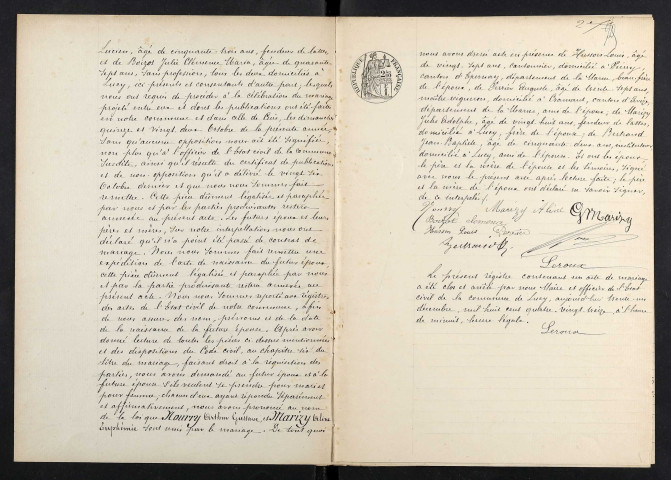 Lucien, âgé de cinquante trois ans, fendeur de lattes
et de Boizot Julie Clémence Maria, âgée de quarante
sept ans, sans profession, tous les deux domiciliés à
Lucy, ici présents et consentants d'autre part, lesquels
nous ont requis de procéder à la célébration du mariage
projeté entre eux et dont les publications ont été faites
en notre commune et dans celle de les dimanches
quinze et vingt deux Octobre de la présente année.
Sans qu'aucune opposition nous ait été signifiée,
non plus qu'à l'officier de l'état civil de la commune
susdite, ainsi qu'il résulte du certificat de publication
et de non opposition qu'il a délivré le vingt six
Octobre dernier et que nous nous sommes fait
remettre. Cette pièce dûment légalisée et paraphée
par nous et par les parties produisantes restera
annexée au présent acte. Les futurs époux et leurs
pères et mères, sur notre interpellation nous ont
déclaré qu'il n'a point été passé de contrat de
mariage. Nous nous sommes fait remettre une
expédition de l'acte de naissance du futur époux
cette pièce dûment légalisée et paraphée par nous
et par la partie produisante restera annexée au
présent acte. Nous nous sommes reporté aux registres
des actes de l'état civil de notre commune, afin
de nous assurer des nom, prénoms et de la date
de la naissance de la future épouse. Après avoir
donné lecture de toutes les pièces ci dessus mentionnées
et des dispositions du Code civil, au chapitre six du
titre du mariage, faisant droit à la réquisition des
parties, nous avons demandé au futur époux et à la
future épouse s'ils veulent se prendre pour mari et
pour femme, chacun d'eux ayant répondu séparément
et affirmativement, nous avons prononcé au nom
de la loi que Nourry Gustave et Marizy
Euphémie sont unis par le mariage. De tout quoi
2e
RÉPUBLIQUE FRANÇAISE
nous avons dressé acte en présence de Husson Louis, âgé
de vingt sept ans, cantonnier, domicilié à Pierry
canton d'Epernay, département de la Marne, beau frère
de l'époux, de Perrier Auguste, âgé de trente sept ans,
maître vigneron, domicilié à Cramant, canton d'Avize,
département de la Marne, ami de l'époux, de Marizy
Jules Adolphe, âgé de vingt huit ans, fendeur de lattes,
domicilié à Lucy, frère de l'épouse, de Bertrand
Jean Baptiste, âgé de cinquante deux ans, instituteur
domicilié à Lucy, ami de l'épouse. Et ont les époux,
le père et la mère de l'épouse et les témoins, signé
avec nous le présent acte après lecture faite; le père
et la mère de l'époux ont déclaré ne savoir signer,
de ce interpellés.
Nourry Marizy Marizy
Boizot Clémence
Husson Louis Perrier
Leroux
Le présent registre contenant un acte de mariage
a été clos et arrêté par nous Maire et officier de l'état
civil de la commune de Lucy, aujourd'hui trente un
décembre, mil huit cent quatre vingt treize, à l'heure
de minuit, heure légale.
Leroux